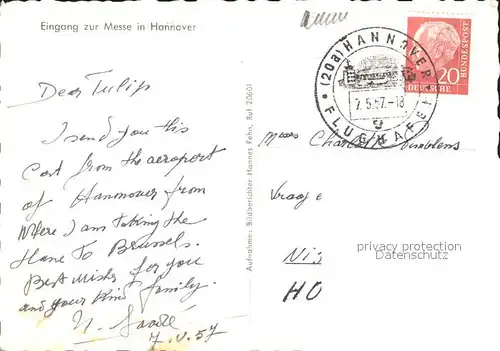 Eingang zur Messe in Hannover
Dear Tulip
I send you this
Cart from the aeroport
of Hannover from
Where I am taking the
Plane To Brussels.
Best Wishes for you
and your kind family.
7.V.57
Aufnahme: Bildberichter Hannes Fehn, Ruf 20601
(20a) HANNOVER
7.5.57.-18
g
FLUGHAFEN
20
DEUTSCHE
BUNDESPOST
privacy protection
Datenschutz
HO